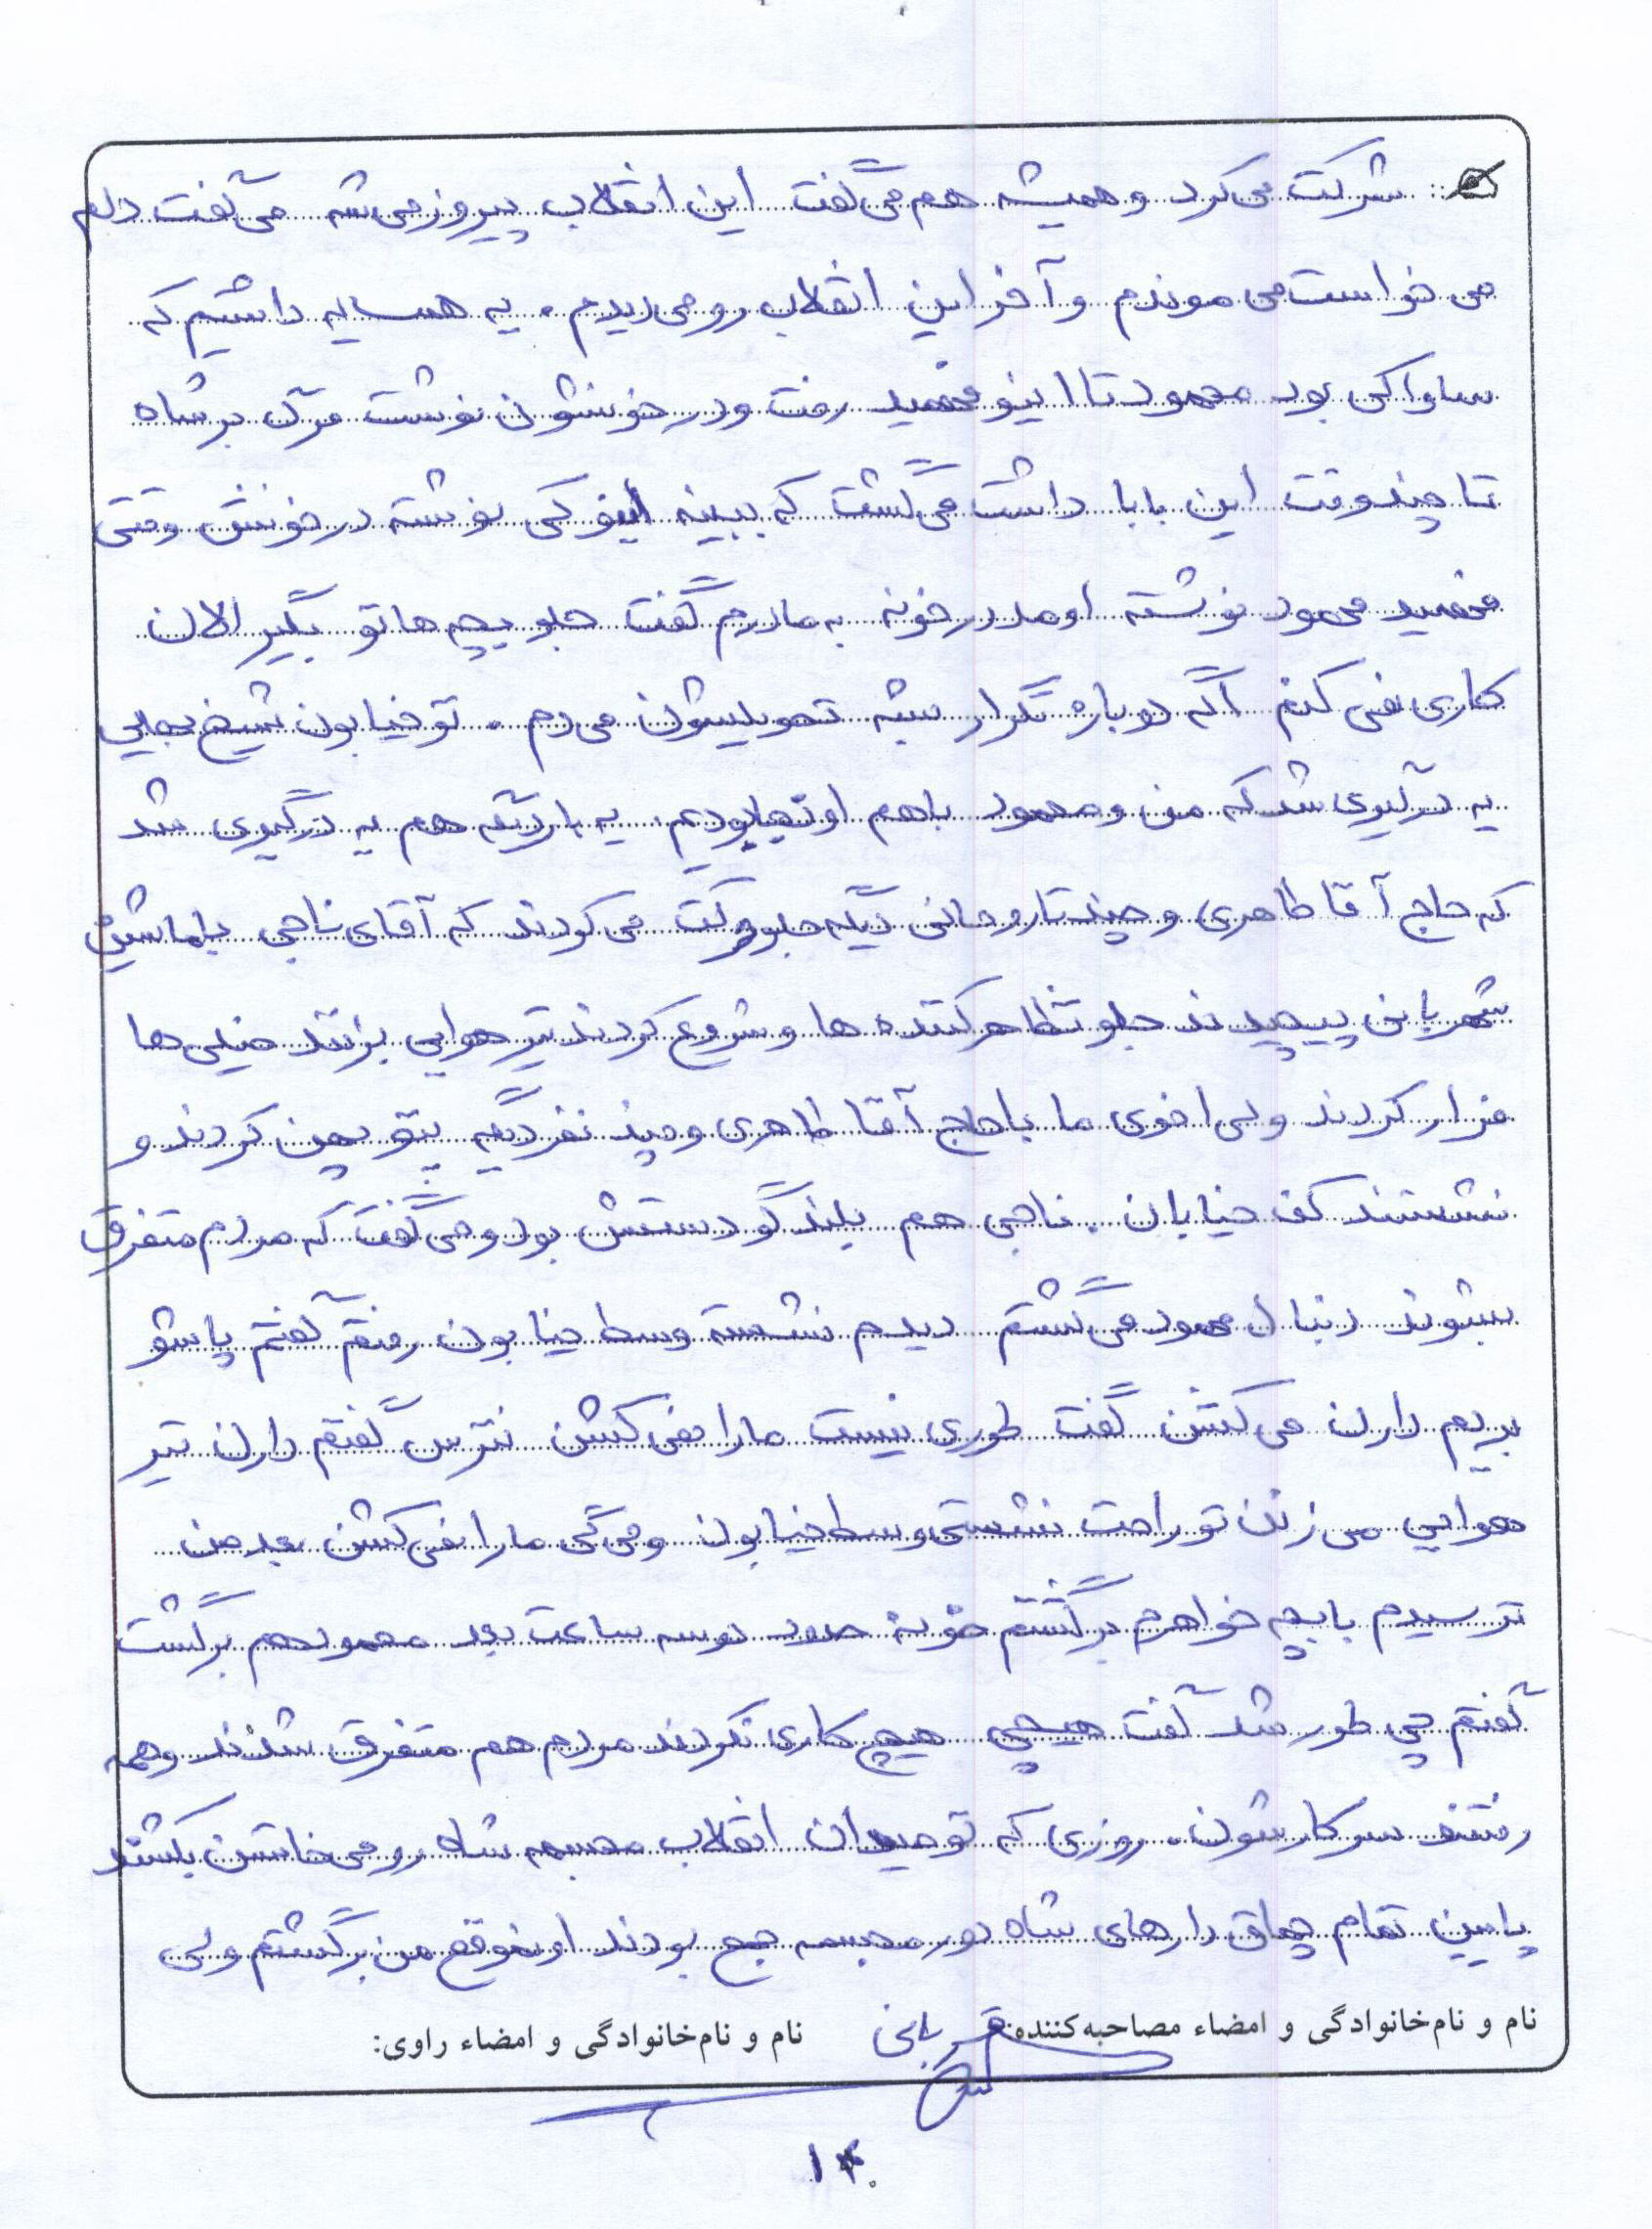 شرکت می‌کرد و همیشه هم می‌گفت این انقلاب پیروز می‌شه می‌گفت دلم
می خواست می موندم و آخر این انقلاب رو می‌دیدم. یه همسایه داشتیم که
ساواکی بود محمود تا اینو فهمید رفت و در خونشون نوشت مرگ بر شاه
تا چند وقت این بابا داشت می‌گشت که ببینه اینو کی نوشته در خونش وقتی
فهمید محمود نوشته اومد در خونه به مادرم گفت جلو بچه هاتو بگیر الان
کاری نمی کنم اگه دوباره تکرار بشه تحویلشون می دم. تو خیابون شیخ بهایی
یه درگیری شد که من و محمود باهم اونجا بودیم. یه بار دیگه هم یه درگیری شد
که حاج آقا طاهری و چند تا روحانی دیگه جلو حرکت می کردند که آقای ناجی با ماشین
شهربانی پیچیدند جلو تظاهر کننده ها و شروع کردند تیر هوایی بزنند خیلی ها
فرار کردند ولی اخوی ما با حاج آقا طاهری و چند نفر دیگه پتو پهن کردند و
نشستند کف خیابان. ناجی هم بلندگو دستش بود و می گفت که مردم متفرق
بشوند دنبال محمود می گشتم دیدم نشسته وسط خیابون رفتم گفتم پاشو
بریم دارن می کشن گفت طوری نیست ما را نمی کشن نترس گفتم دارن تیر
هوایی می زنن تو راحت نشستی وسط خیابون و می گی ما را نمی کشن بعد من
ترسیدم با بچه خواهرم برگشتم خونه حدود دو سه ساعت بعد محمود هم برگشت
گفتم چی طور شد گفت هیچی هیچ کاری نکردند مردم هم متفرق شدند و همه
رفتند سر کارشون. روزی که تو میدان انقلاب مجسمه شاه رو می خاستن بکشند
پایین تمام چماق دارهای شاه دور مجسمه جمع بودند اونموقع من برگشتم ولی
نام و نام‌خانوادگی و امضاء مصاحبه‌کننده: قربانی نام و نام‌خانوادگی و امضاء راوی:
۱۴